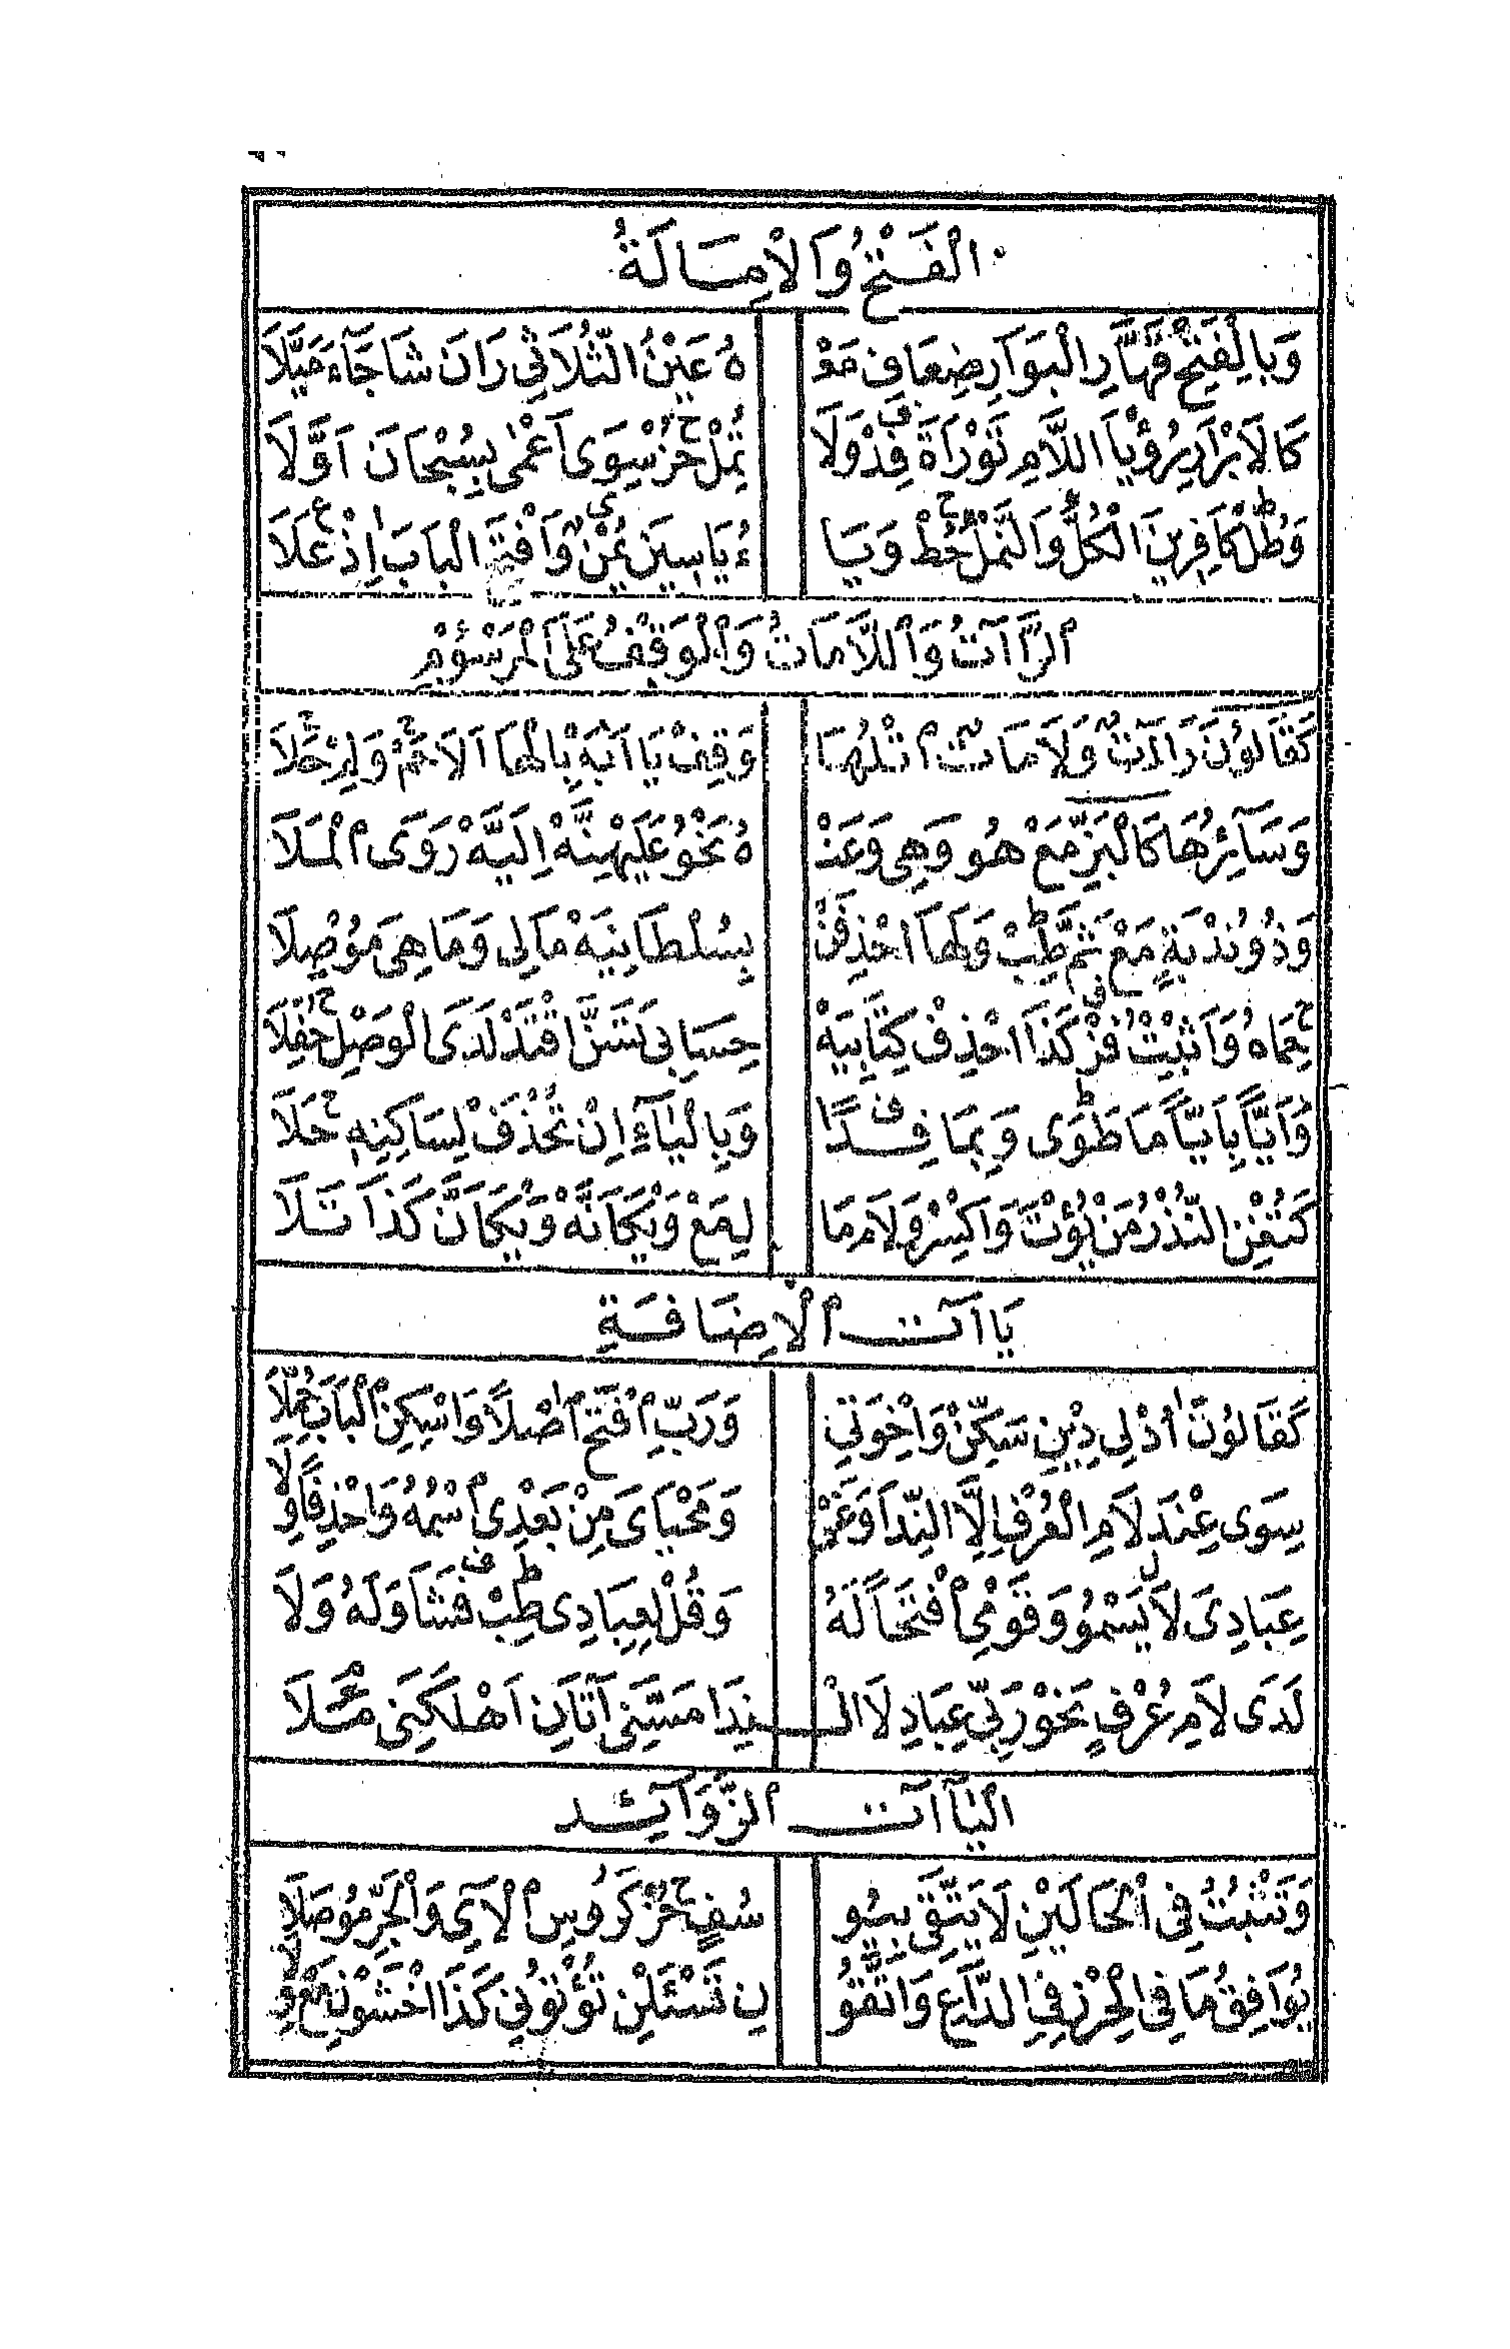 اَلْفَتْحُ وَالْاِمَالَةُ
وَبِالْفَتْحِ قَهَّارِ الْبَوَارِ ضِعَافِ مَعْ هُ عَيْنُ الثُّلَاثِي رَانَ شَا جَآءَ مَيَّلَا
كَالَابْرَارِ رُؤْيَا اللَّامِ تَوْرَاةَ فِدْ وَلَا تُمِلْ حُزْ سِوَى اَعْمٰى بِسُبْحَانَ اَوَّلَا
وَطُلْ كَافِرِينَ الْكُلَّ وَالنَّمْلَ حُطْ وَيَا ءُ يَاسِينَ يُمْنٌ وَافْتَحِ الْبَابَ اِذْ عَلَا
اَلرَّاآتُ وَاللَّامَاتُ وَالْوَقْفُ عَلَى الْمَرْسُوْمِ
كَقَالُوْنَ رَاءَاتٍ وَلَامَاتٍ اتْلُهَا وَقِفْ يَا اَبَهْ بِالْهَا اَلَا حُمْ وَلِمْ حَلَا
وَسَآئِرُهَا كَالْبَزِّ مَعْ هُو وَهِي وَعَنْ هُ نَحْوُ عَلَيْهُنَّهْ اِلَيَّهْ رَوَى الْمَلَا
وَذُو نُدْبَةٍ مَعْ ثَمَّ طِبْ وَلَهَا احْذِفَنْ بِسُلْطَانِيَهْ مَالِي وَمَا هِيَ مُوْصِلَا
حِمَاهُ وَاَثْبِتْ فُزْ كَذَا احْذِفْ كِتَابِيَهْ حِسَابِي تَسَنَّ اقْتَدْ لَدَى الْوَصْلِ حُفِّلَا
وَاَيًّا بِاَيًّا مَا طَوَى وَبِمَا فِدًا وَبِالْيَآءِ اِنْ تُحْذَفْ لِسَاكِنِهٖ حَلَا
كَتُغْنِ النُّذُرْ مَنْ يُؤْتَ وَاكْسِرْ وَلَامَ مَا لِ مَعْ وَيْكَاَنَّهْ وَيْكَاَنَّ كَذَا تَلَا
يَاآتُ الْاِضَافَةِ
كَقَالُوْنَ اُدْ لِي دِيْنِ سَكِّنْ وَاِخْوَتِي وَرَبِّ افْتَحَ اصْلًا وَاسْكِنِ الْبَابَ حُمِّلَا
سِوَى عِنْدَ لَامِ الْعُرْفِ اِلَّا النِّدَا وَغَيْرَ وَمَحْيَاىَ مِنْ بَعْدِى اسْمُهُ وَاحْذِفًا وِلَا
عِبَادِىَ لَا يَسْمُو وَقَوْمِى افْتَحًا لَهُ وَقُلْ لِعِبَادِى طِبْ فَشَا وَلَهُ وَلَا
لَدَى لَامِ عُرْفٍ نَحْوُ رَبِّي عِبَادِ لَا النِّدَا مَسَّنِي آتَانِ اَهْلَكَنِي مُلَا
اَلْيَاآتُ الزَّوَآئِدُ
وَتَثْبُتُ فِى الْحَالَيْنِ لَا يَتَّقِي بِيُو سُفٍ حُزْ كَرُوسِ الْآيِ وَالْحَبْرُ مُوْصِلَا
يُوَافِقُ مَا فِى الْحِرْزِ فِى الدَّاعِ وَاتَّقُو نِ تَسْئَلْنِ تُؤْتُونِي كَذَا اخْشَوْنِ مَعْ وِلَا